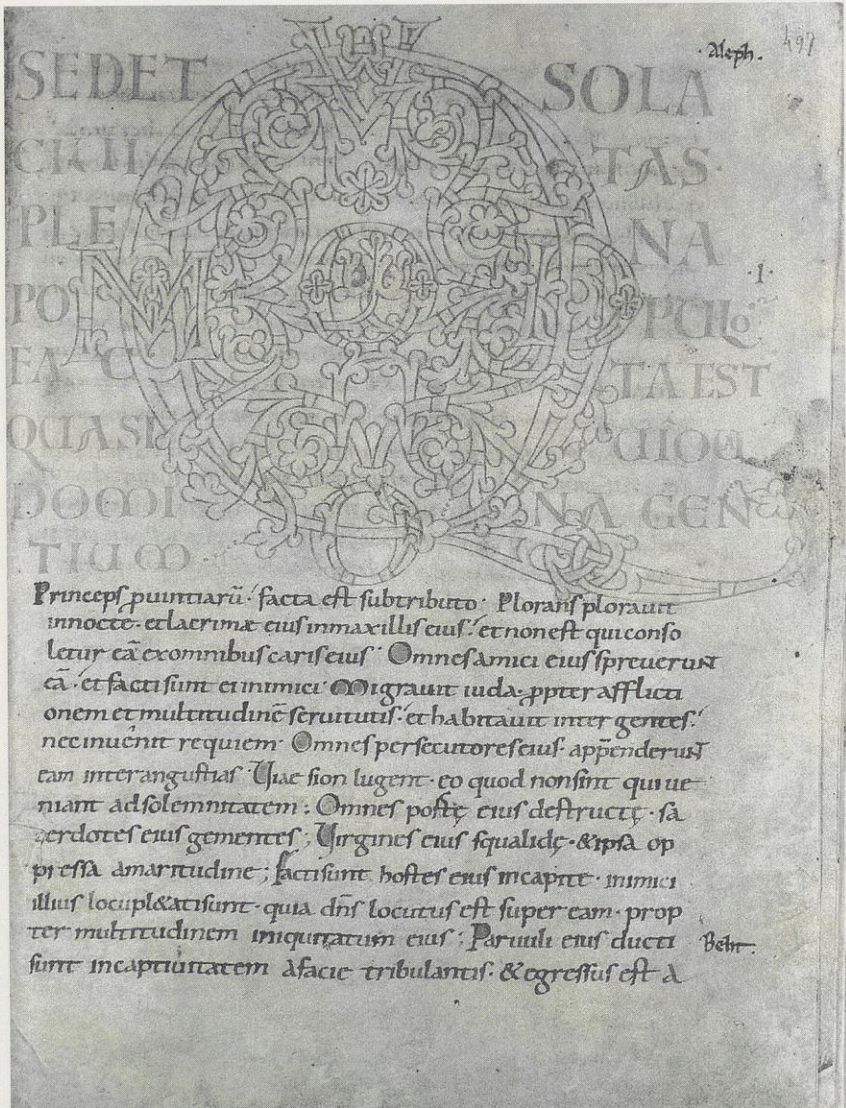 Aleph. 497
SEDET SOLA
CIUI TAS
PLE NA
PO PULO
FAC TA EST
QUASI UIDUA
DOMI NA GEN
TIUM
.1.
Princeps ꝓuintiarū· facta est subtributo· Plorans plorauit
innocte· etlacrimæ eius inmaxillis eius· et non est qui conso
letur eā exomnibus caris eius· Omnes amici eius spreuerunt
eā· et facti sunt ei inimici Migrauit iuda· ꝓpter afflicti
onem et multitudinē seruitutis· et habitauit inter gentes·
nec inuenit requiem· Omnes persecutores eius· app̄enderunt
eam interangustias Uiae sion lugent· eo quod nonsint qui ue
niant adsolemnitatem; Omnes portę eius destructę· sa
cerdotes eius gementes; Uirgines eius squalidę· &ipsa op
pressa amaritudine; Facti sunt hostes eius incapite· inimici
illius locupl&ati sunt· quia dn̄s locutus est super eam· prop
ter multitudinem iniquitatum eius; Paruuli eius ducti Beth.
sunt incaptiuitatem afacie tribulantis· &egressus est a